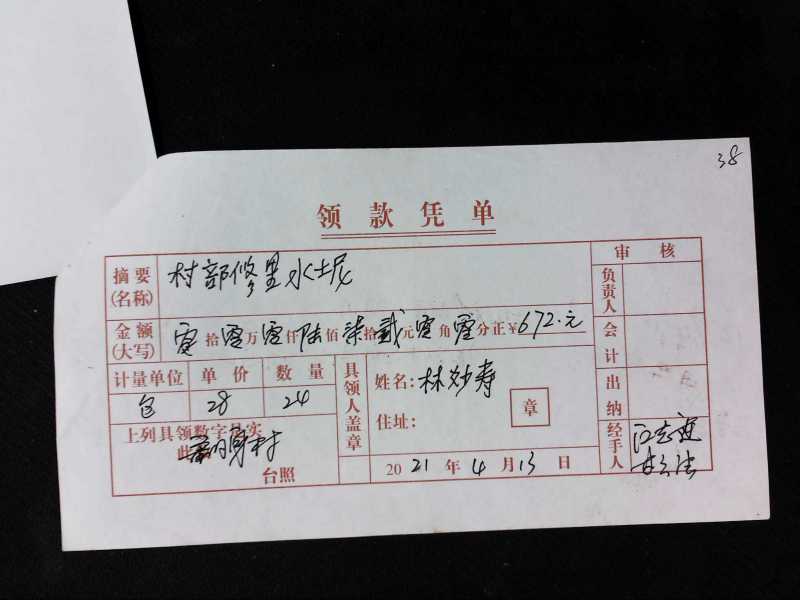 38
领款凭单
审核
摘要(名称) 村部修里水坭
负责人
金额(大写) 零拾零万零仟陆佰柒拾贰元零角零分正¥672.元
会计
计量单位 单价 数量
包 28 24
具领人盖章
姓名:林妙寿
住址:
章
出纳
上列具领数字是实
此
村
台照
2021年4月13日
经手人